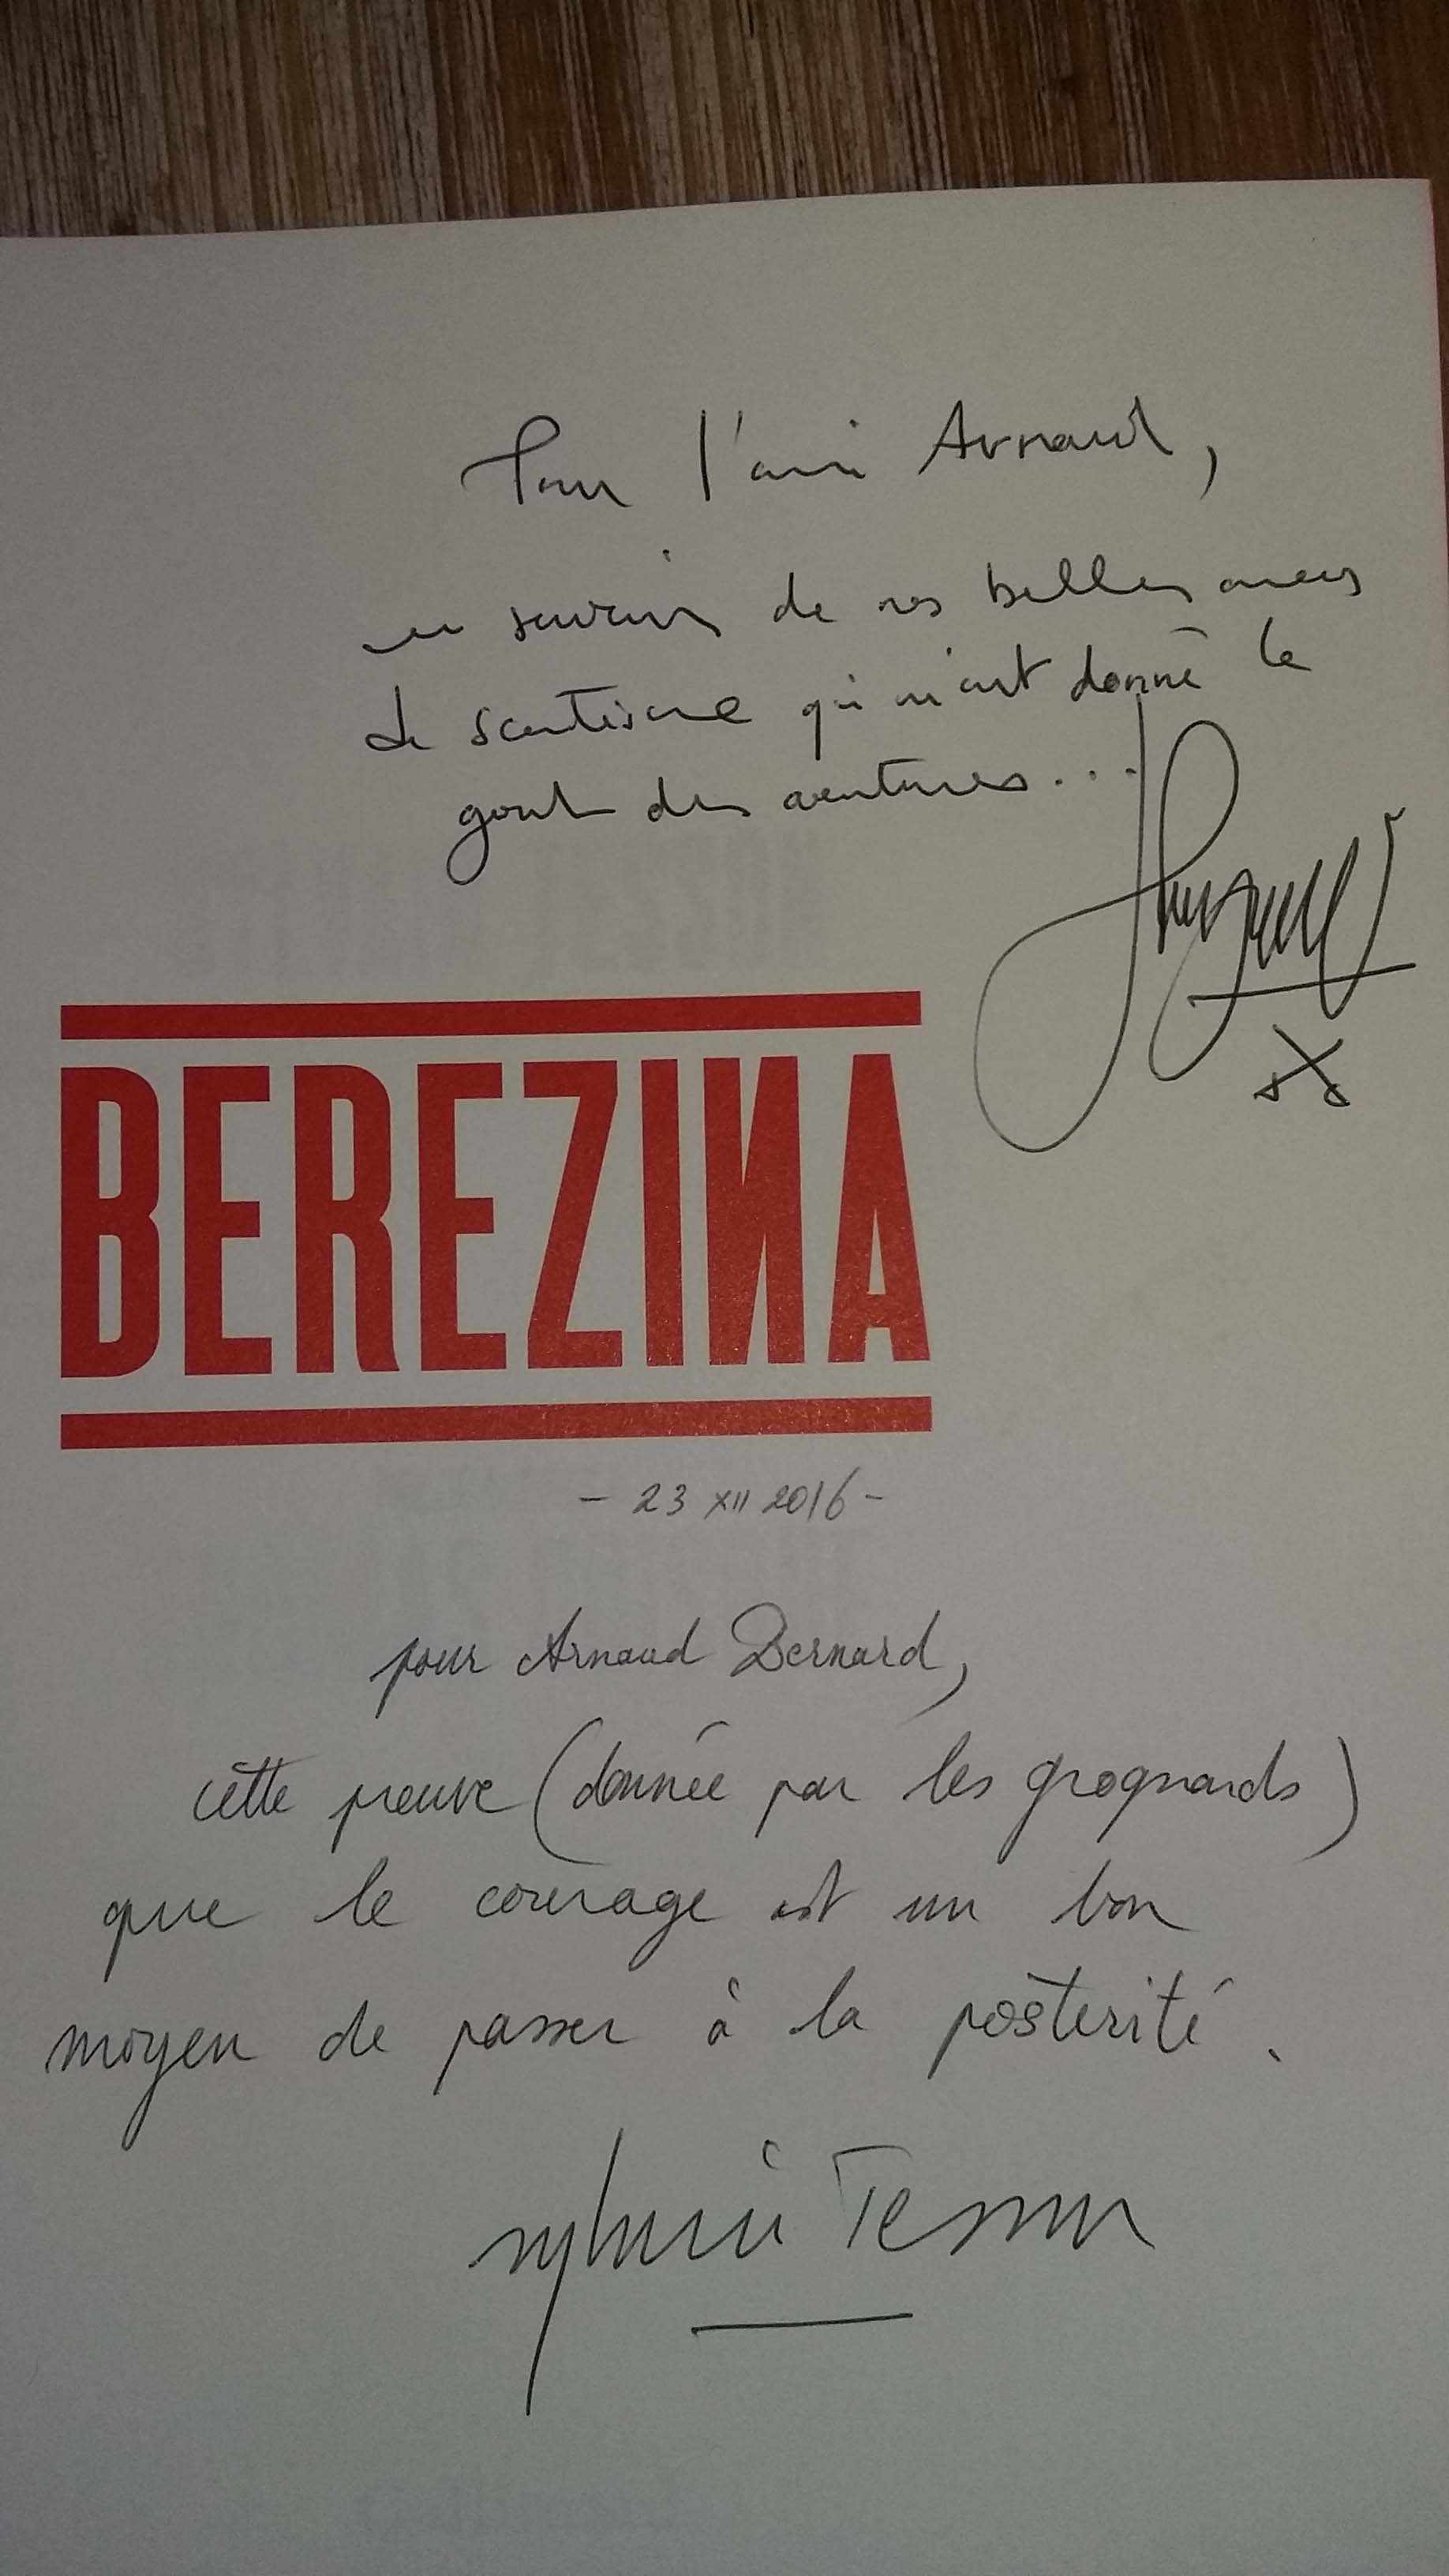 Pour l'ami Arnaud,
en souvenir de nos belles années
de scoutisme qui m'ont donné le
gout des aventures...
BEREZINA
- 23 XII 2016 -
pour Arnaud Bernard,
cette preuve (donnée par les grognards)
que le courage est un bon
moyen de passer à la postérité.
Sylvain Tesson